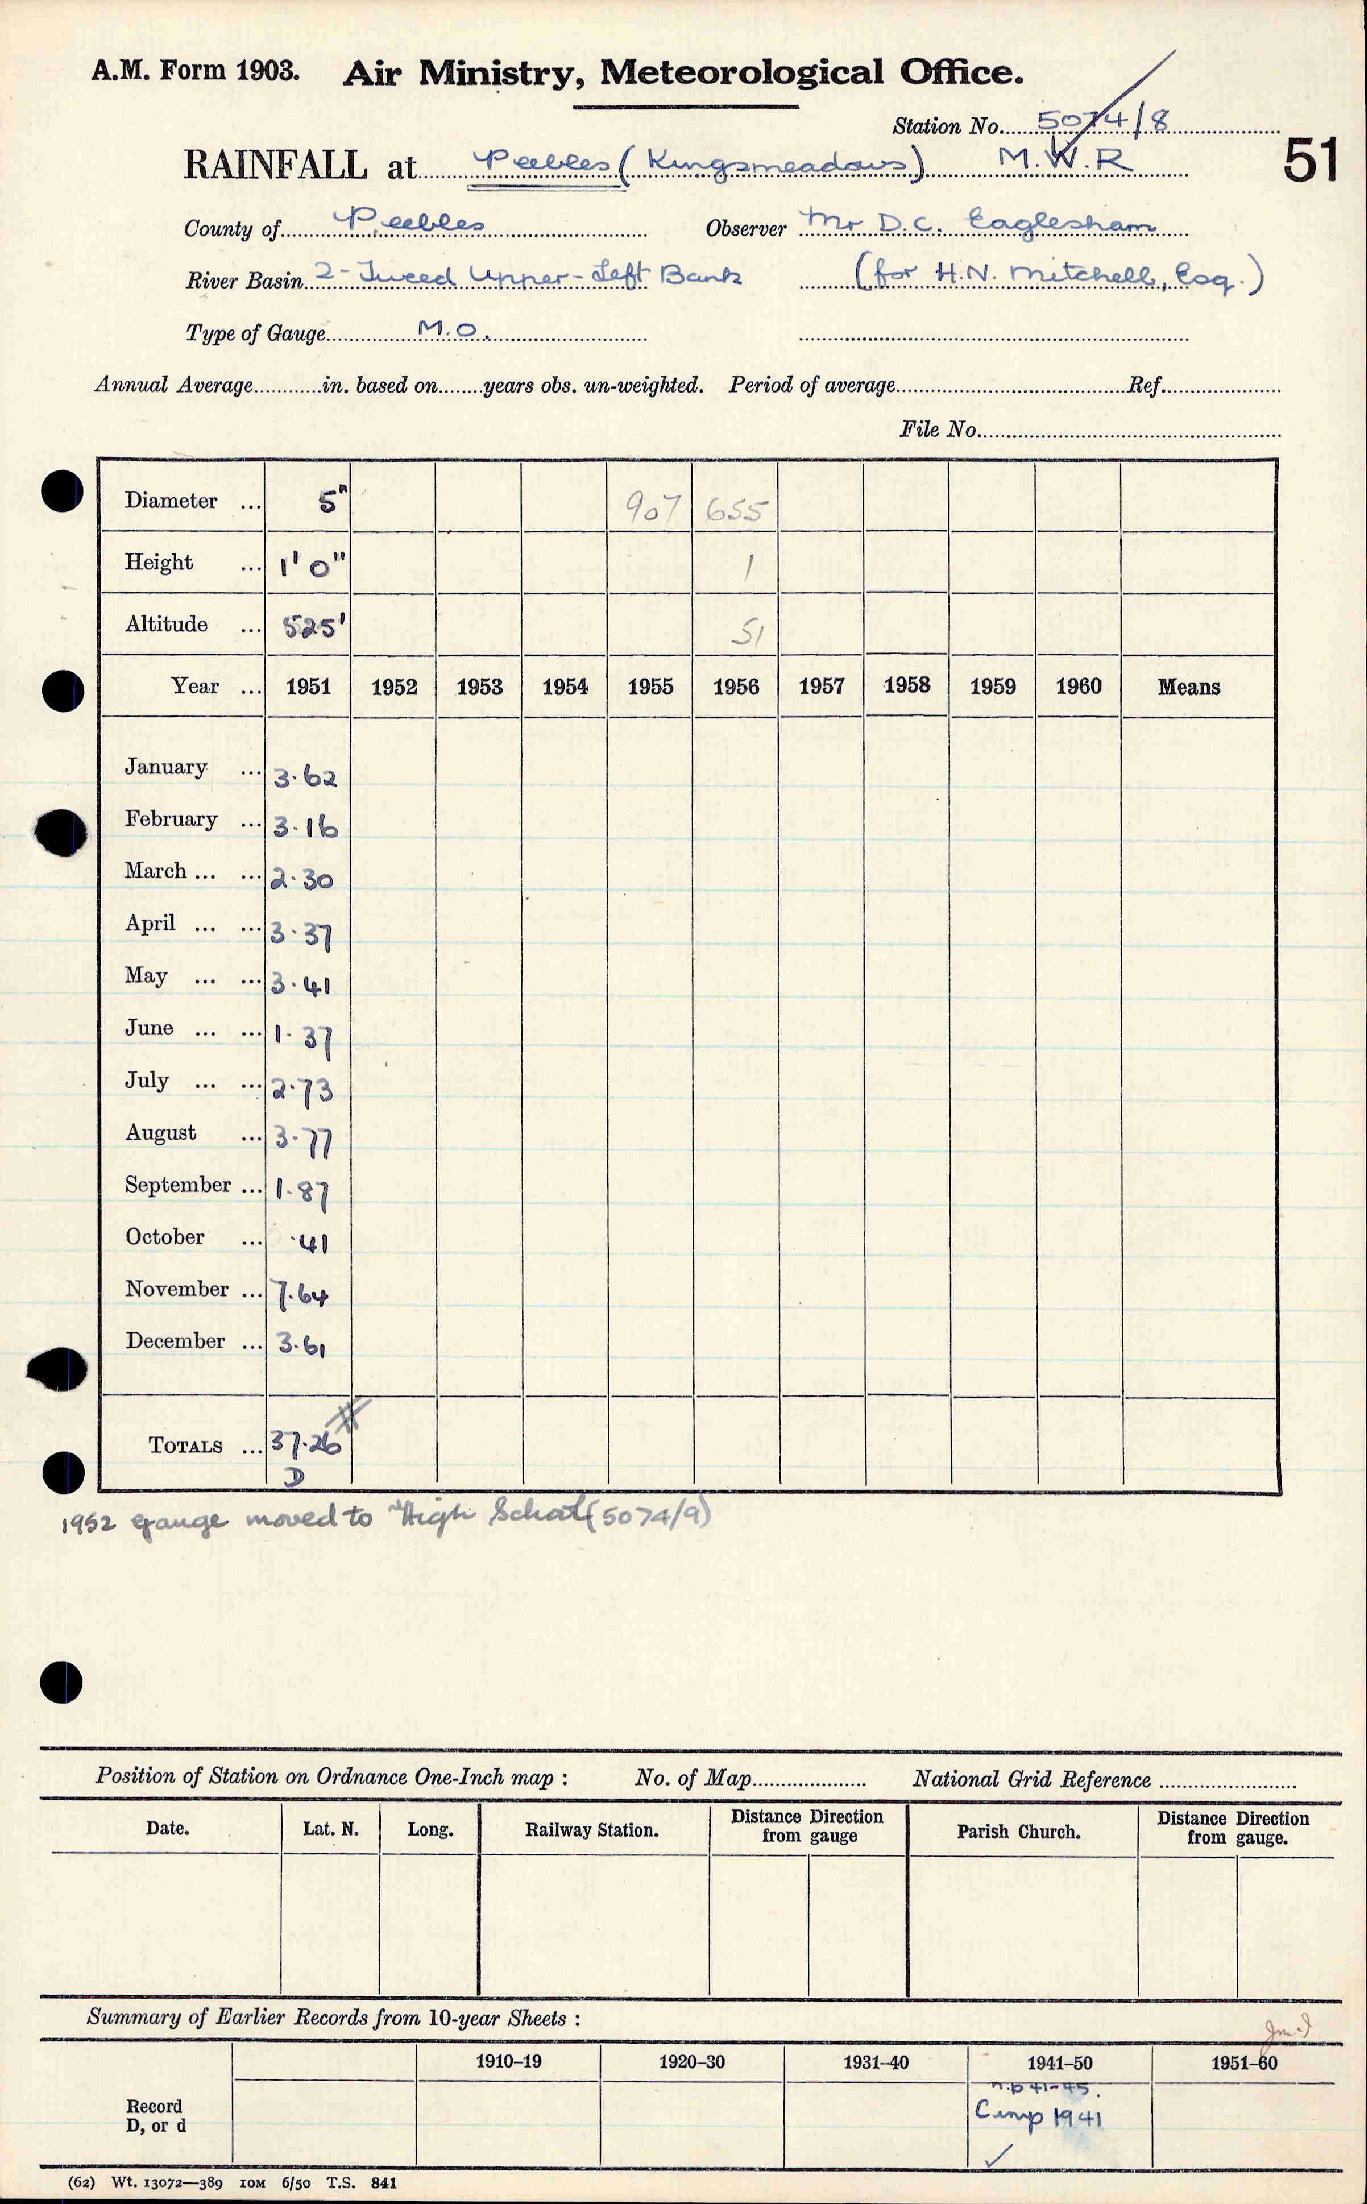 A.M. Form 1903. Air Ministry, Meteorological Office.
Station No. 5074/8
RAINFALL at Peebles (Kingsmeadows) M.W.R 51
County of Peebles Observer Mr D.C. Eaglesham
River Basin 2-Tweed Upper-Left Bank (for H.N. Mitchell, Esq.)
Type of Gauge M.O.
Annual Average in. based on years obs. un-weighted. Period of average Ref.
File No.
Diameter ... 5" 907 655
Height ... 1' 0" 1
Altitude ... 525' 51
Year ... 1951 1952 1953 1954 1955 1956 1957 1958 1959 1960 Means
January ... 3.62
February ... 3.16
March ... ... 2.30
April ... ... 3.37
May ... ... 3.41
June ... ... 1.37
July ... ... 2.73
August ... 3.77
September ... 1.87
October ... .41
November ... 7.64
December ... 3.61
TOTALS ... 37.26 #
D
1952 gauge moved to "High School (5074/9)
Position of Station on Ordnance One-Inch map : No. of Map National Grid Reference
Date. Lat. N. Long. Railway Station. Distance Direction from gauge Parish Church. Distance Direction from gauge.
Summary of Earlier Records from 10-year Sheets :
1910–19 1920–30 1931–40 1941–50 1951–60
n.p 41-45.
Record Comp 1941
D, or d ✓
(62) Wt. 13072—389 10M 6/50 T.S. 841